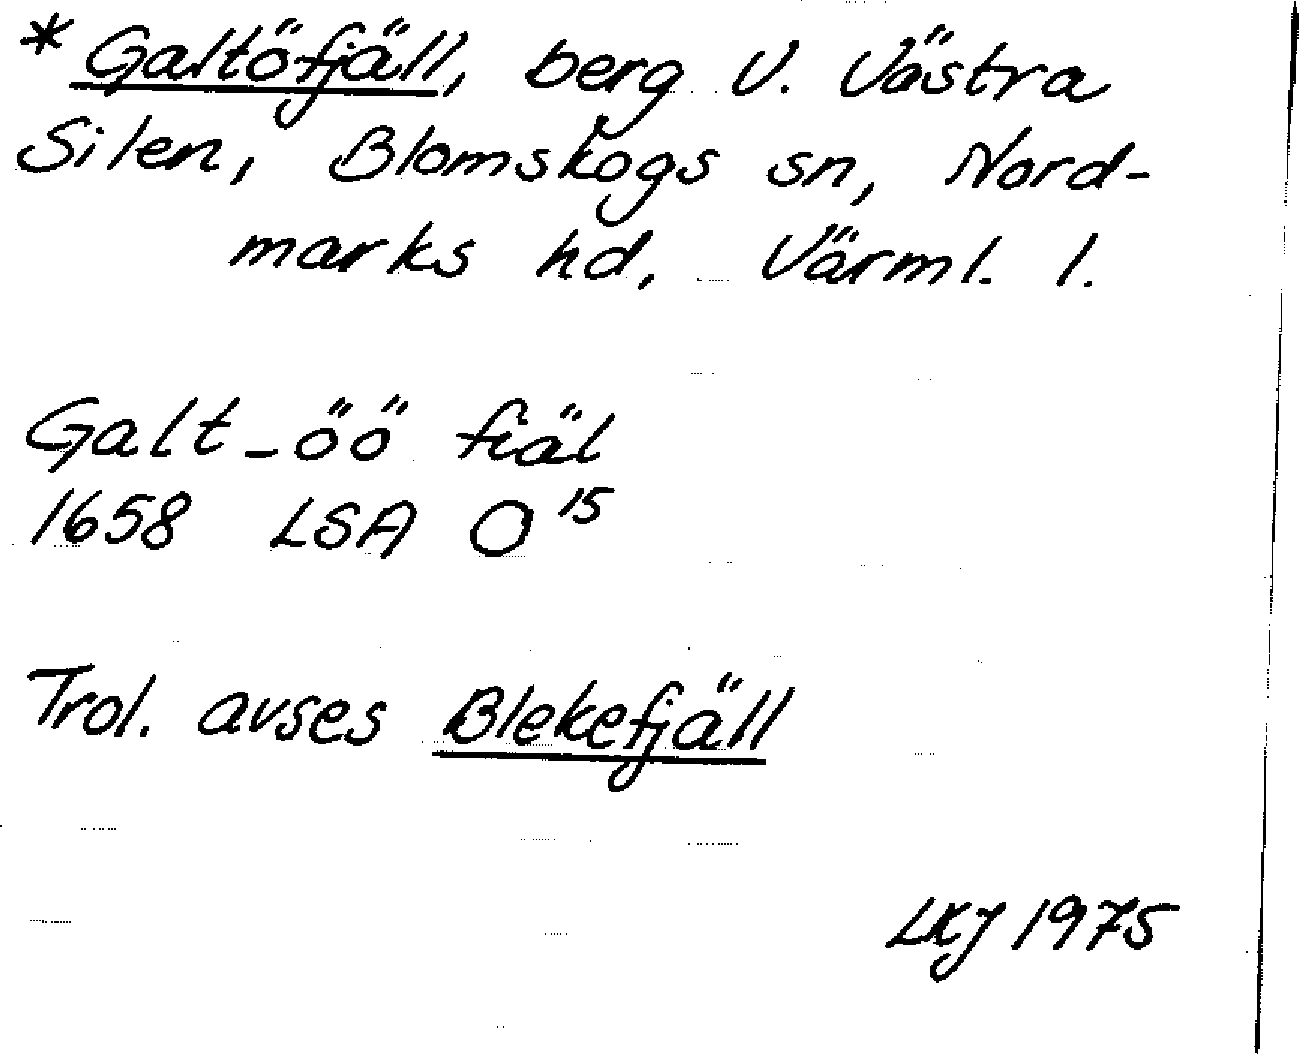 * Galtöfjäll, berg V. Västra
Silen, Blomskogs sn, Nord-
marks hd, Värml. l.
Galt-öö fiäl
1658 LSA O 15
Trol. avses Blekefjäll
LKJ 1975